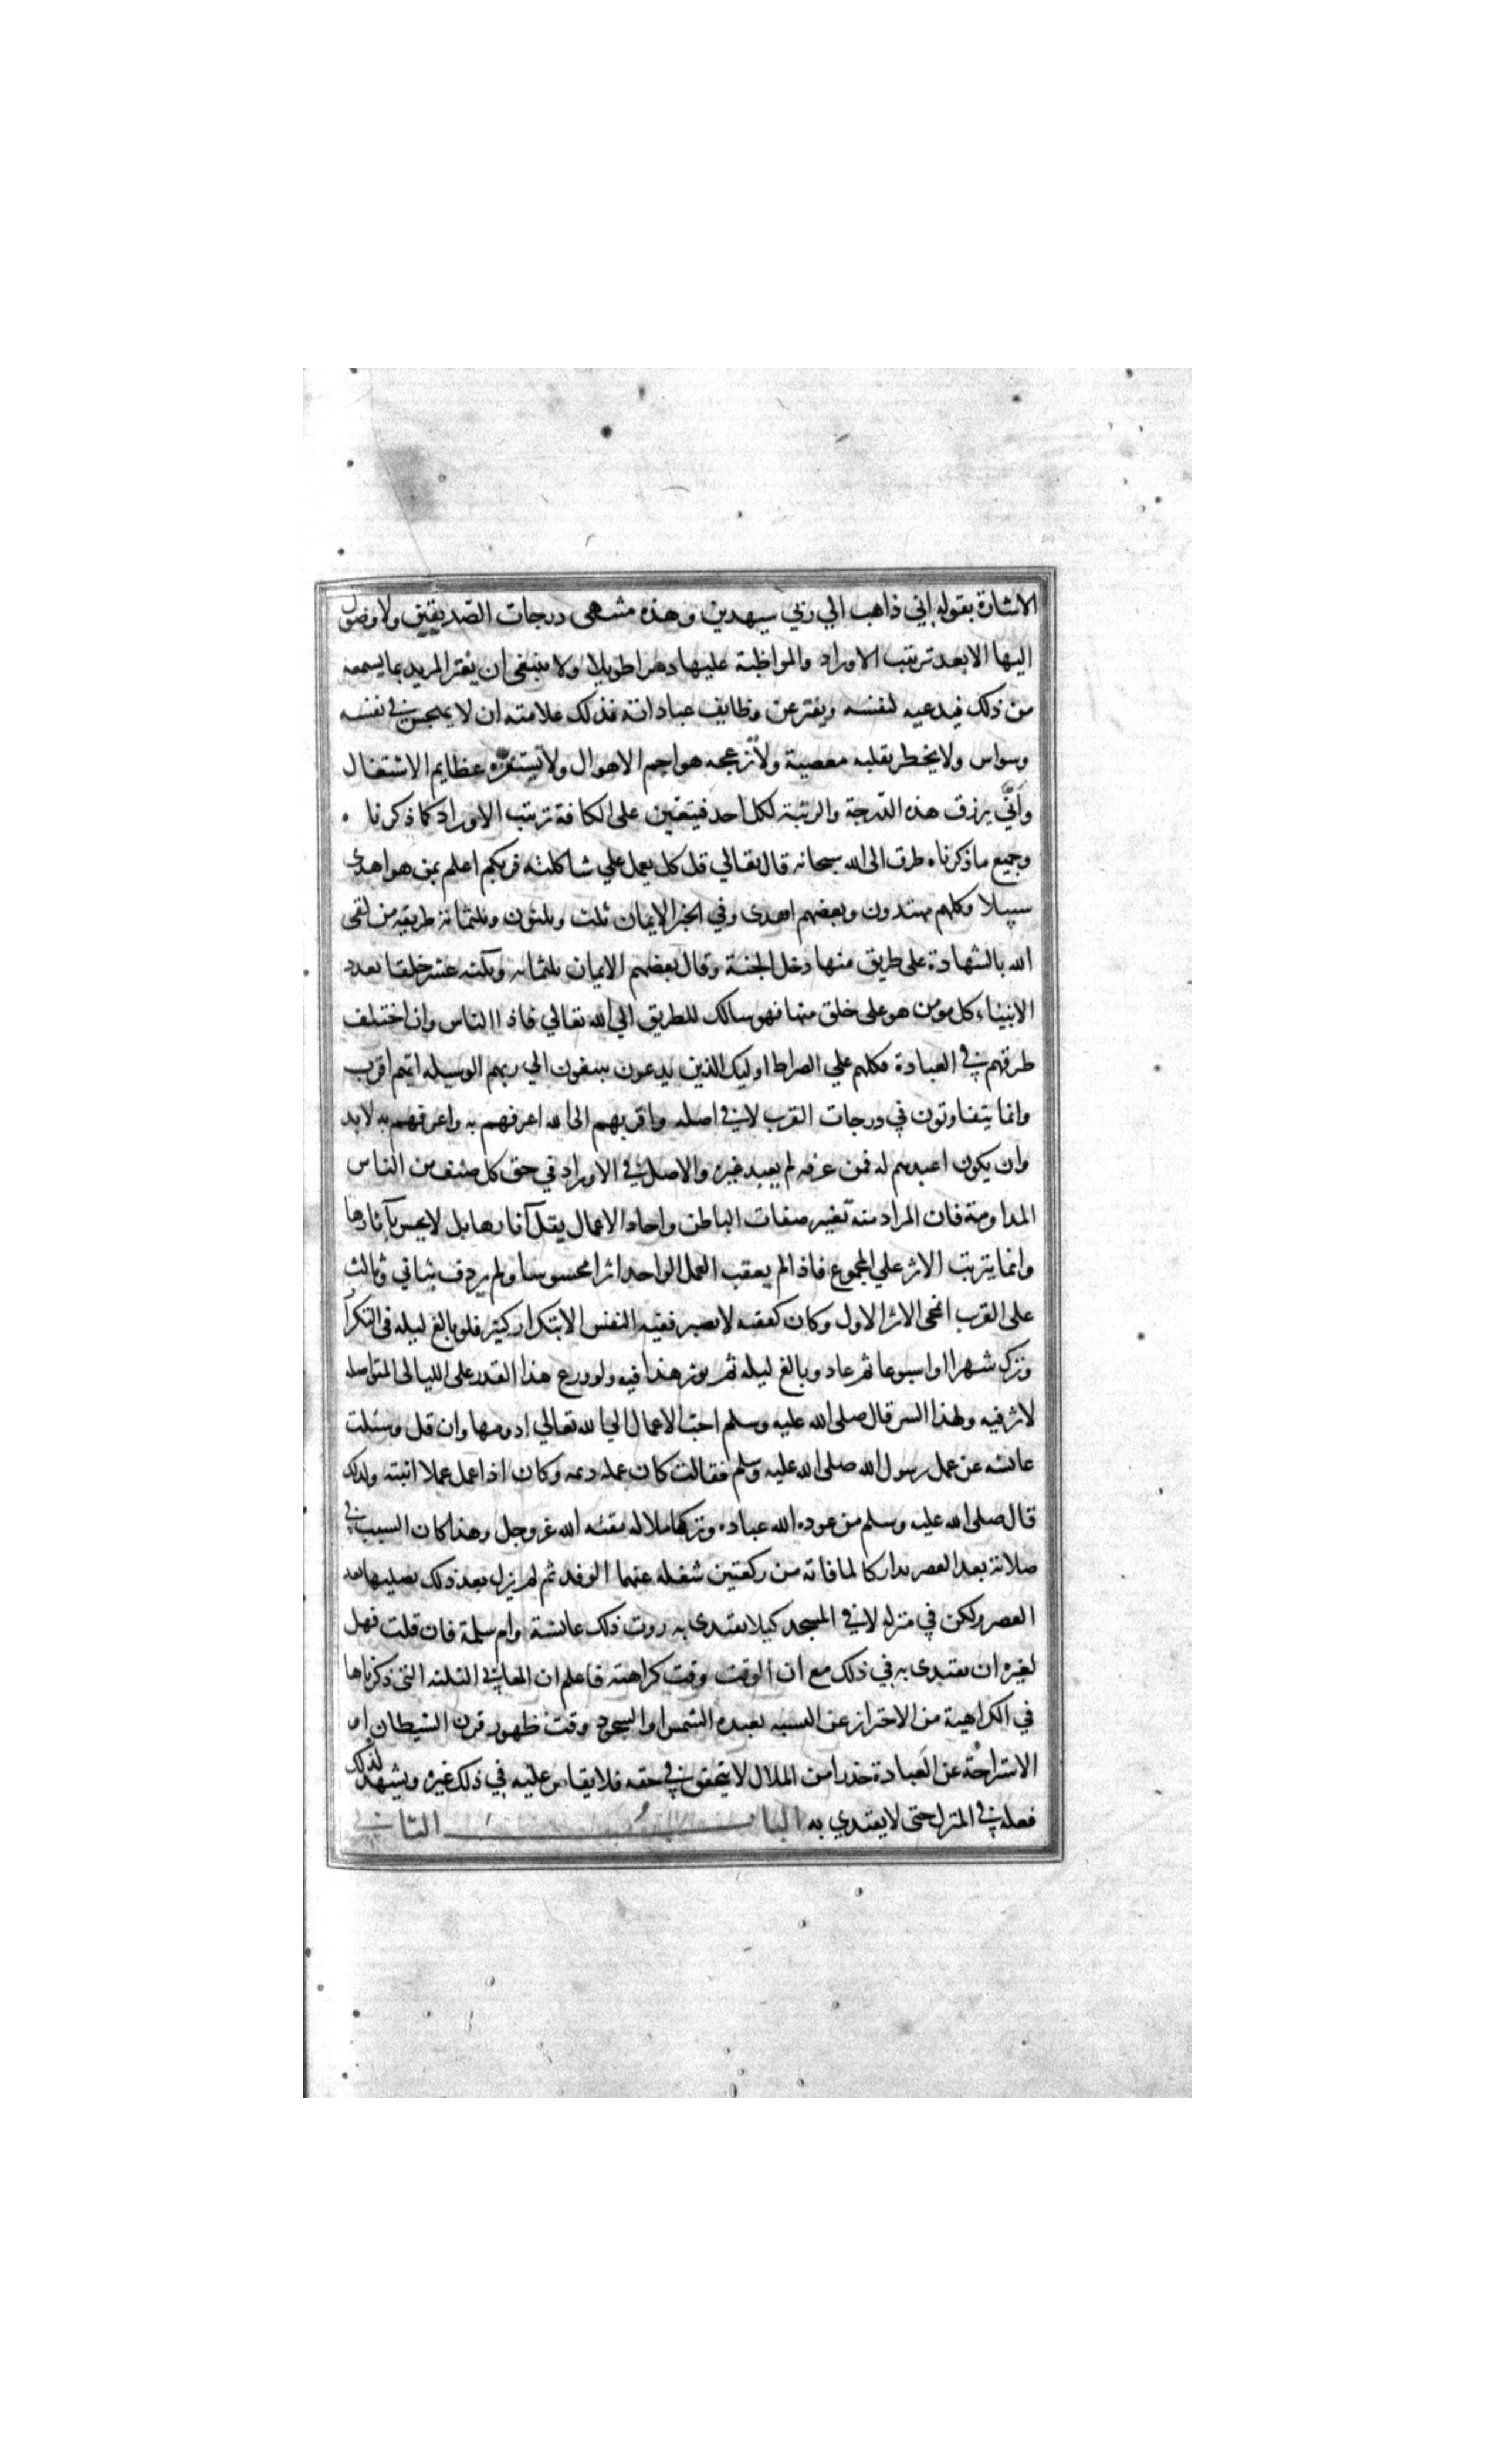 الاشارة بقوله اني ذاهب الي ربي سيهدين وهذه منتهى درجات الصديقين ولا وصول
اليها الا بعد ترتيب الاوراد والمواظبة عليها دهرا طويلا ولا ينبغى ان يغتر المريد بما يسمعه
من ذلك فيدعيه لنفسه ويفتر عن وظايف عباداته فذلك علامته ان لا يهجس في نفسه
وسواس ولا يخطر بقلبه معصية ولا تزعجه هواجم الاهوال ولا تستفزه عظايم الاشتغال
وأنّي يرزق هذه الدرجة والرتبة لكل احد فيتعين على الكافة ترتيب الاوراد كما ذكرنا
وجميع ما ذكرناه طرق الى الله سبحانه قال تعالي قل كل يعمل علي شاكلته فربكم اعلم بمن هو اهدى
سبيلا فكلهم مهتدون وبعضهم اهدى وفي الخبر الايمان ثلث وثلثون وثلثمائة طريقه من لقى
الله بالشهادة على طريق منها دخل الجنة وقال بعضهم الايمان ثلثمائه وثلثه عشر خلقا بعدد
الانبياء وكل مومن هو على خلق منها فهو سالك للطريق الي الله تعالي فاذا الناس وان اختلف
طرقهم في العبادة فكلهم علي الصراط اوليك الذين يدعون يبتغون الي ربهم الوسيله ايهم اقرب
وانما يتفاوتون في درجات القرب لا في اصله واقربهم الى الله اعرفهم به واعرفهم به لا بد
وان يكون اعبدهم له فمن عرفه لم يعبد غيره والاصل في الاوراد في حق كل صنف من الناس
المداومة فان المراد منه تغيير صفات الباطن واحاد الاعمال يقل آثارها بل لا يحس بآثارها
وانما يترتب الاثر علي المجموع فاذا لم يعقب العمل الواحد اثرا محسوسا ولم يردف بثاني وثالث
على القرب انمحى الاثر الاول وكان كفقيه لا يصير فقيه النفس الا بتكرار كثير فلو بالغ ليله في التكرار
وترك شهرا او اسبوعا ثم عاد وبالغ ليله ثم يوثر هذا فيه ولو وزع هذا القدر على الليالى المتواصله
لاثر فيه ولهذا السر قال صلى الله عليه وسلم احب الاعمال الي الله تعالي ادومها وان قل وسئلت
عائشه عن عمل رسول الله صلى الله عليه وسلم فقالت كان عمله ديمه وكان اذا عمل عملا اثبته ولذلك
قال صلى الله عليه وسلم من عوده الله عباده وتركها ملاله مقته الله عز وجل وهذا كان السبب في
صلاته بعد العصر تداركا لما فاته من ركعتين شغله عنهما الوفد ثم لم يزل بعد ذلك يصليها بعد
العصر ولكن في منزله لا في المسجد كيلا يقتدى به روت ذلك عائشة وام سلمة فان قلت فهل
لغيره ان يقتدى به في ذلك مع ان الوقت وقت كراهته فاعلم ان المعاني الثلثه التى ذكرناها
في الكراهية من الاحتراز عن التشبه بعبده الشمس او السجود وقت ظهور قرن الشيطان او
الاستراحة عن العبادة حذرا من الملال لا يتحقق في حقه فلا يقاس عليه في ذلك غيره ويشهد لذلك
فعله في المنزل حتى لا يقتدي به الباب الثاني